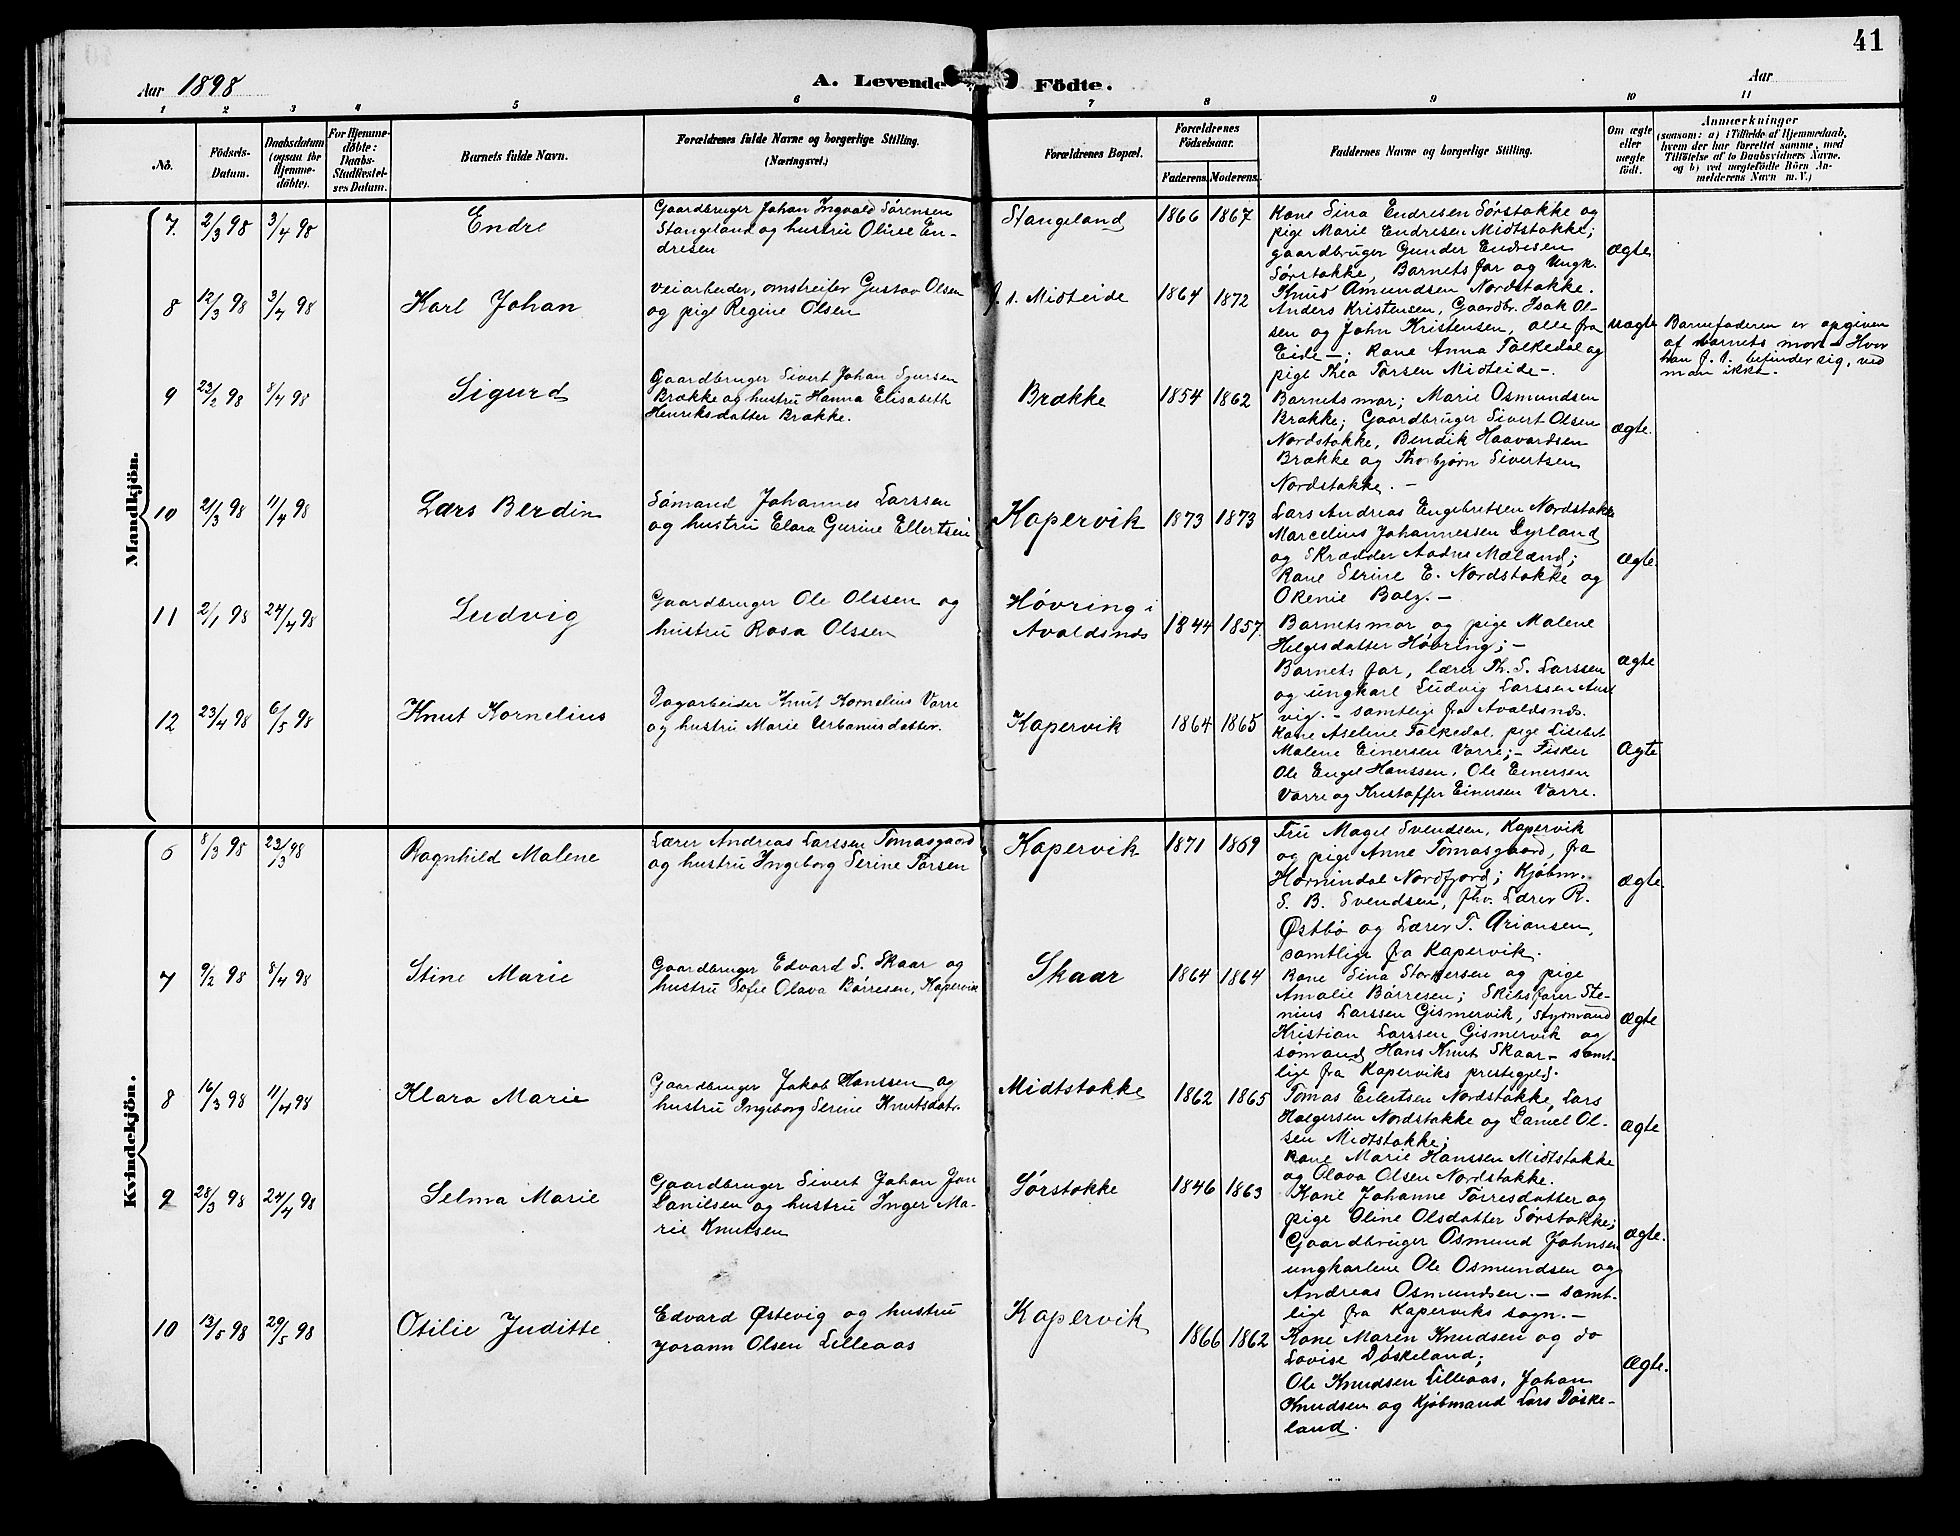 41
Aar 1898
A. Levende Födte.
Aar
1 2 3 4 5 6 7 8 9 10 11
No.
Födsels-Datum.
Daabsdatum (ogsaa for Hjemme-døbte).
For Hjemme-døbte: Daabs-Stadfæstel-ses Datum.
Barnets fulde Navn.
Forældrenes fulde Navne og borgerlige Stilling. (Næringsvei.)
Forældrenes Bopæl.
Forældrenes Födselsaar.
Faderens. Moderens.
Faddernes Navne og borgerlige Stilling.
Om ægte eller uægte födt.
Anmærkninger
(saasom: a) i Tilfælde af Hjemmedaab,
hvem der har forrettet samme, med
Tilföielse af to Daabsvidners Navne.
og b) ved uægtefödte Börn An-
melderens Navn m. V.)
Mandkjön.
7. 2/3 98 3/4 98 Endre
Gaardbruger Johan Ingvald Sørensen
Stangeland og hustru Oline En-
dresen
Stangeland 1866 1867
Kone Sina Endresen Sørstokke og
pige Marie Endresen Midtstokke;
gaardbruger Gunder Endresen
Sørstokke, Barnets far og Ungk.
Knud Amundsen Nordstokke.
ægte
8 12/3 98 3/4 98 Karl Johan
veiarbeider, omstreifer Gustav Olsen
og pige Regine Olsen
f. t. Midteide 1864 1872
Anders Kristensen, Gaardbr. Isak Ol-
sen og John Kristensen, alle fra
Eide -; Kone Anna Falkedal og
pige Thea Torsen Midteide -.
uægte
Barnefaderen er opgiven
af barnets mor - Hvor
han f. t. befinder sig, ved
man ikke.
9 23/2 98 8/4 98 Sigurd
Gaardbruger Sivert Johan Sjursen
Brække og hustru Hanna Elisabeth
Henriksdatter Brække.
Brække 1854 1862
Barnets mor; Marie Osmundsen
Brække; Gaardbruger Sivert Olsen
Nordstokke, Bendik Haavardsen
Brække og Thorbjørn Sivertsen
Nordstokke. -
ægte.
10 21/3 98 11/4 98 Lars Berdin
Sømand Johannes Larssen
og hustru Elara Gurine Ellertsen
Kopervik 1873 1873
Lars Andreas Engebretsen Nordstokke
Marcelius Johannessen Dyrland
og Skrædder Aadne Mæland;
Kone Serine E. Nordstokke og
Okenie Bolg. -
ægte.
11 2/1 98 24/4 98 Ludvig
Gaardbruger Ole Olssen og
hustru Rosa Olssen
Høvring i
Avaldsnes
1844 1857.
Barnets mor og pige Malene
Helgesdatter Høvring; -
Barnets far, lærer Th. S. Larssen
og ungkarl Ludvig Larssen
vig. - samtlige fra Avaldsnes.
ægte
12 23/4 98 6/5 98 Knut Kornelius
Dagarbeider Knut Kornelius Vorre
og hustru Marie Urbanusdatter.
Kopervik 1864 1865
Kone Aseline Falkedal, pige Lisebet
Malene Einersen Vorre; - Fisker
Ole Engel Hanssen, Ole Einersen
Vorre og Kristoffer Einersen Vorre.
ægte
Kvindekjön.
6 8/3 98 23/3 98 Ragnhild Malene
Lærer Andreas Larssen Tomasgaard
og hustru Ingeborg Serine Torsen
Kopervik 1871 1869
Fru Magel Svendsen, Kopervik
og pige Anne Tomasgaard, fra
Hornindal Nordfjord; Kjøbm.
S. B. Svendsen, fhv. Lærer R.
Østbø og Lærer T. Ariansen,
samtlige fra Kopervik.
ægte.
7 9/2 98 8/4 98 Stine Marie
Gaardbruger Edvard S. Skaar og
hustru Sofie Olava Børresen, Kopervik
Skaar 1864 1864
Kone Sina Storkersen og pige
Amalie Børresen; Skibsfører Ste-
nius Larssen Gismervik, Styrmand
Kristian Larssen Gismervik og
sømand Hans Knut Skaar - samt-
lige fra Koperviks prestegjeld.
ægte
8 16/3 98 11/4 98 Klara Marie
Gaardbruger Jakob Hanssen og
hustru Ingeborg Serine Knutsdatr.
Midtstokke 1862 1865
Tomas Eilertsen Nordstokke, Lars
Holgersen Nordstokke og Daniel Ol-
sen Midtstokke;
Kone Marie Hanssen Midtstokke
og Olava Olsen Nordstokke.
ægte
9 28/3 98 24/4 98 Selma Marie
Gaardbruger Sivert Johan Jon
Danilsen og hustru Inger Ma-
rie Knutsen
Sørstokke 1846 1863
Kone Johanne Tørresdatter og
pige Oline Olsdatter Sørstokke;
Gaardbruger Osmund Johnsen
ungkarlene Ole Osmundsen og
Andreas Osmundsen. - samt-
lige fra Koperviks sogn. -
ægte.
10 13/5 98 29/5 98 Otilie Juditte
Edvard Østevig og hustru
Jorann Olsen Lilleaas
Kopervik 1866 1862
Kone Maren Knudsen og do
Lovise Døskeland;
Ole Knudsen Lilleaas, Johan
Knudsen og Kjøbmand Lars Døske-
land.
ægte.